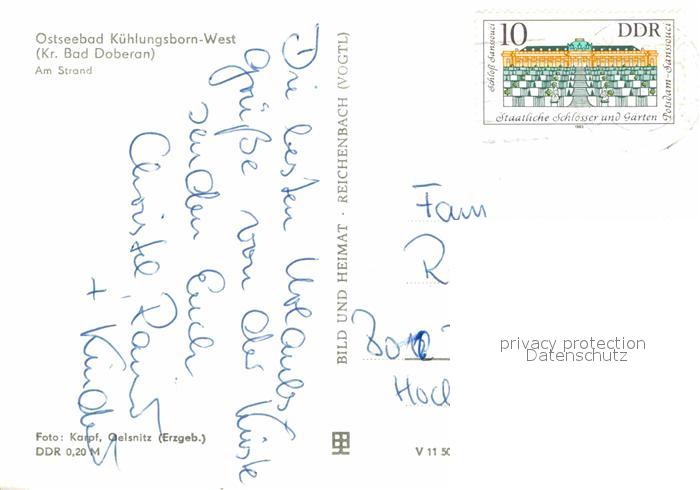 Ostseebad Kühlungsborn-West
(Kr. Bad Doberan)
Am Strand
Die besten Urlaubs
grüße von der Küste
senden Euch
Christel, Rainer
+ Kinder
Foto: Karpf, Oelsnitz (Erzgeb.)
DDR 0,20 M
BILD UND HEIMAT · REICHENBACH (VOGTL)
V 11 50
10 DDR
Schloß Sanssouci
Potsdam-Sanssouci
Staatliche Schlösser und Gärten
1983
Fam
R
Hoch
privacy protection
Datenschutz